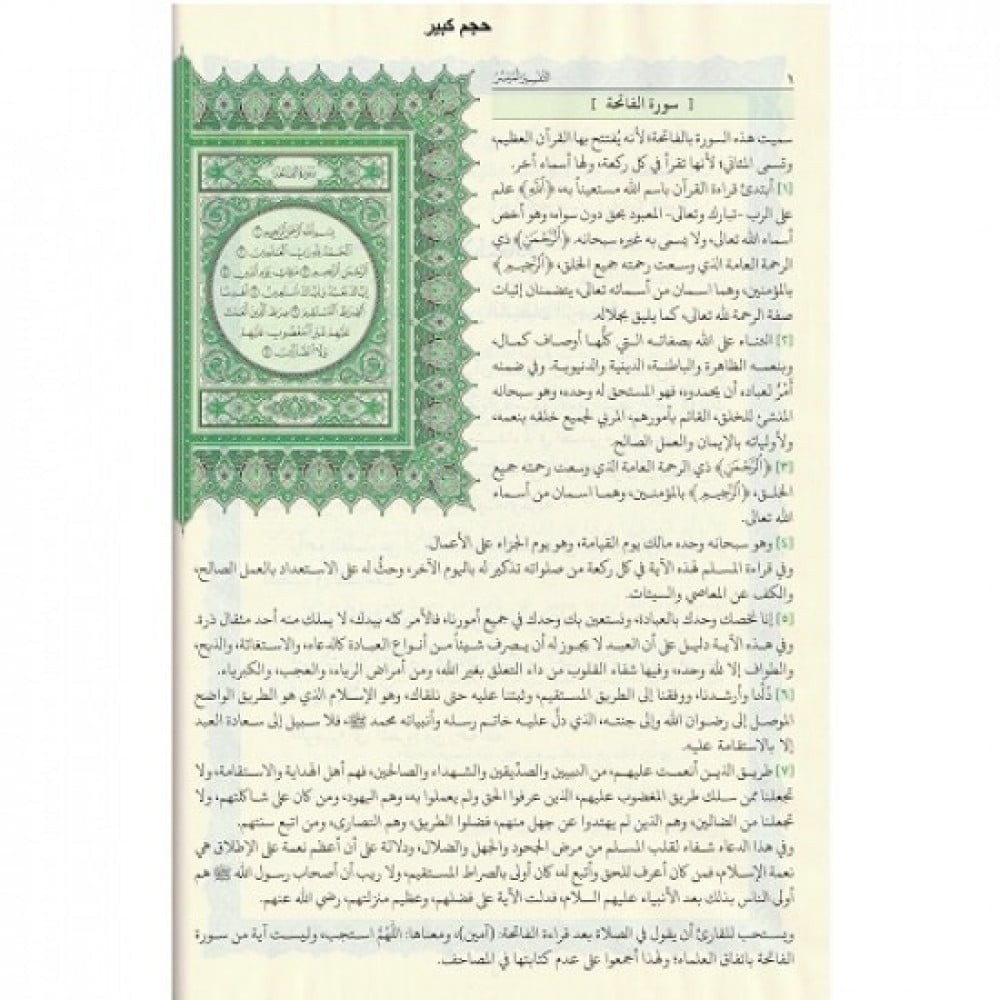 حجم كبير
١
التفسير الميسر
[ سورة الفاتحة ]
سميت هذه السورة بالفاتحة؛ لأنه يُفتتح بها القرآن العظيم،
وتسمى المثاني؛ لأنها تقرأ في كل ركعة، ولها أسماء أخر.
[١] أبتدئ قراءة القرآن باسم الله مستعيناً به، ﴿ٱللَّهِ﴾ علم
على الرب -تبارك وتعالى- المعبود بحق دون سواه، وهو أخص
أسماء الله تعالى، ولا يسمى به غيره سبحانه. ﴿ٱلرَّحْمَٰنِ﴾ ذي
الرحمة العامة الذي وسعت رحمته جميع الخلق، ﴿ٱلرَّحِيمِ﴾
بالمؤمنين، وهما اسمان من أسمائه تعالى، يتضمنان إثبات
صفة الرحمة لله تعالى، كما يليق بجلاله.
[٢] الثناء على الله بصفاته التي كلُّها أوصاف كمال،
وبنعمه الظاهرة والباطنة، الدينية والدنيوية. وفي ضمنه
أَمْرٌ لعباده أن يحمدوه، فهو المستحق له وحده، وهو سبحانه
المنشئ للخلق، القائم بأمورهم، المربي لجميع خلقه بنعمه،
ولأوليائه بالإيمان والعمل الصالح.
[٣] ﴿ٱلرَّحْمَٰنِ﴾ ذي الرحمة العامة الذي وسعت رحمته جميع
الخلق، ﴿ٱلرَّحِيمِ﴾ بالمؤمنين، وهما اسمان من أسماء
الله تعالى.
[٤] وهو سبحانه وحده مالك يوم القيامة، وهو يوم الجزاء على الأعمال.
وفي قراءة المسلم لهذه الآية في كل ركعة من صلواته تذكير له باليوم الآخر، وحثٌّ له على الاستعداد بالعمل الصالح،
والكف عن المعاصي والسيئات.
[٥] إنا نخصك وحدك بالعبادة، ونستعين بك وحدك في جميع أمورنا، فالأمر كله بيدك، لا يملك منه أحد مثقال ذرة.
وفي هذه الآية دليل على أن العبد لا يجوز له أن يصرف شيئاً من أنواع العبادة كالدعاء، والاستغاثة، والذبح،
والطواف إلا لله وحده، وفيها شفاء القلوب من داء التعلق بغير الله، ومن أمراض الرياء، والعجب، والكبرياء.
[٦] دُلَّنا وأرشدنا، ووفقنا إلى الطريق المستقيم، وثبتنا عليه حتى نلقاك، وهو الإسلام الذي هو الطريق الواضح
الموصل إلى رضوان الله وإلى جنته، الذي دلَّ عليه خاتم رسله وأنبيائه محمد ﷺ، فلا سبيل إلى سعادة العبد
إلا بالاستقامة عليه.
[٧] طريق الذين أنعمت عليهم، من النبيين والصدِّيقين والشهداء والصالحين، فهم أهل الهداية والاستقامة، ولا
تجعلنا ممن سلك طريق المغضوب عليهم، الذين عرفوا الحق ولم يعملوا به، وهم اليهود، ومن كان على شاكلتهم، ولا
تجعلنا من الضالين، وهم الذين لم يهتدوا عن جهل منهم، فضلوا الطريق، وهم النصارى، ومن اتبع سنتهم.
وفي هذا الدعاء شفاء لقلب المسلم من مرض الجحود والجهل والضلال، ودلالة على أن أعظم نعمة على الإطلاق هي
نعمة الإسلام، فمن كان أعرف للحق وأتبع له، كان أولى بالصراط المستقيم، ولا ريب أن أصحاب رسول الله ﷺ هم
أولى الناس بذلك بعد الأنبياء عليهم السلام، فدلت الآية على فضلهم، وعظيم منزلتهم، رضي الله عنهم.
ويستحب للقارئ أن يقول في الصلاة بعد قراءة الفاتحة: (آمين)، ومعناها: اللَّهُمَّ استجب، وليست آية من سورة
الفاتحة باتفاق العلماء؛ ولهذا أجمعوا على عدم كتابتها في المصاحف.
سورة الفاتحة
بسم الله الرحمن الرحيم ١
الحمد لله رب العالمين ٢
الرحمن الرحيم ٣ مالك يوم الدين ٤
إياك نعبد وإياك نستعين ٥ اهدنا
الصراط المستقيم ٦ صراط الذين أنعمت
عليهم غير المغضوب عليهم
ولا الضالين ٧